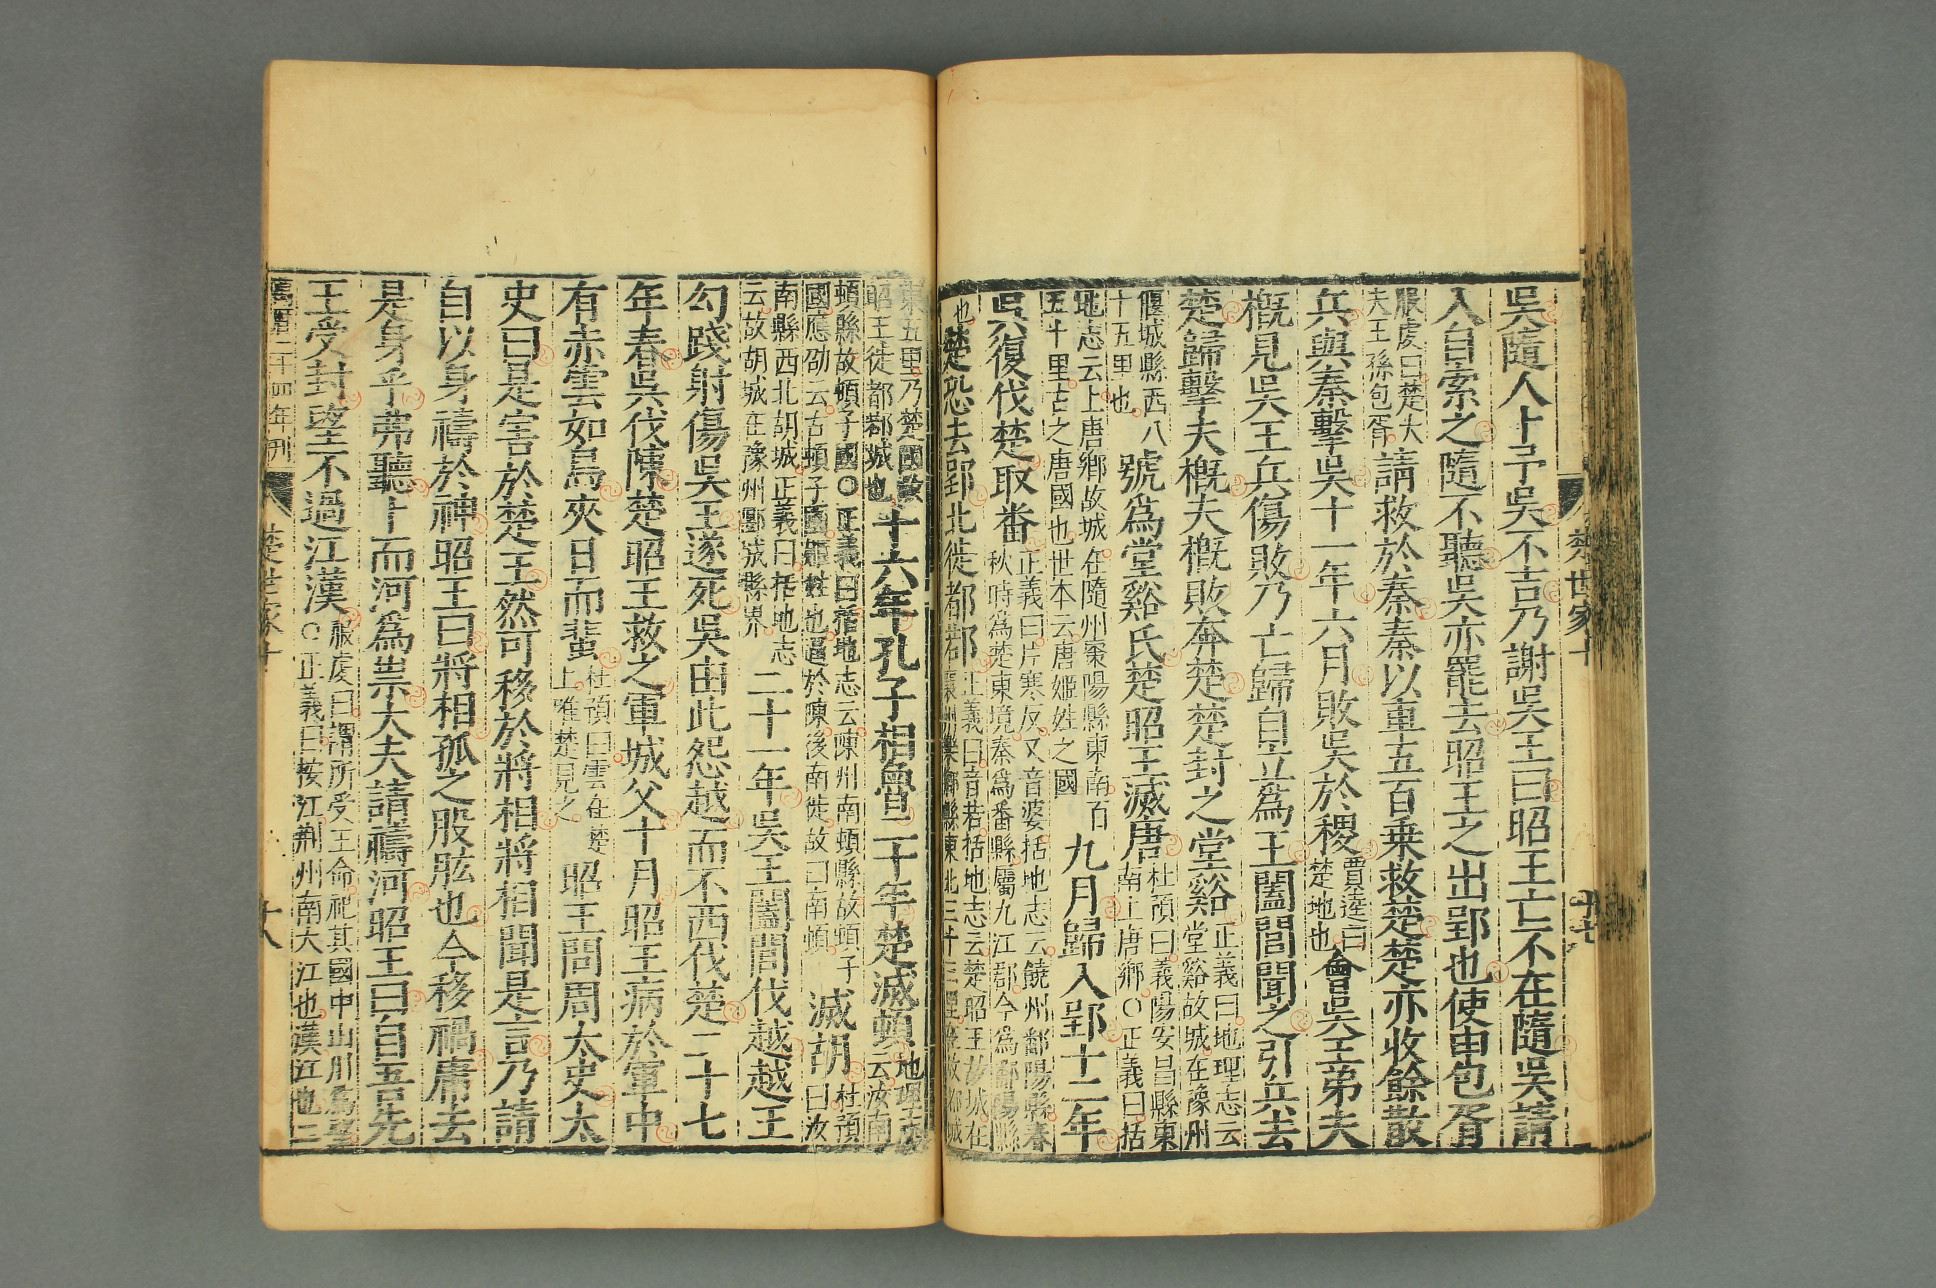 吳隨人卜予吳不吉乃謝吳王曰昭王亡不在隨吳請
入自索之隨不聽吳亦罷去昭王之出郢也使申包胥
服虔曰楚大夫王孫包胥請救於秦秦以車五百乘救楚楚亦收餘散
兵與秦擊吳十一年六月敗吳於稷賈逵曰楚地也會吳王弟夫
槪見吳王兵傷敗乃亡歸自立爲王闔閭聞之引兵去
楚歸擊夫槪夫槪敗奔楚楚封之堂谿正義曰地理志云堂谿故城在豫州
偃城縣西八十五里也號爲堂谿氏楚昭王滅唐杜預曰義陽安昌縣東南上唐鄉○正義曰括
地志云上唐鄉故城在隨州棗陽縣東南百五十里古之唐國也世本云唐姬姓之國九月歸入郢十二年
吳復伐楚取番正義曰片寒反又音婆括地志云饒州鄱陽縣春秋時爲楚東境秦爲番縣屬九江郡今爲鄱陽縣
也楚恐去郢北徙都鄀正義曰音若括地志云楚昭王故城在襄州樂鄉縣東北三十三里在故都城
楚世家十
十七
東五里乃楚國故昭王徙都鄀城也十六年孔子相魯二十年楚滅頓地理志云汝南
頓縣故頓子國○正義曰括地志云陳州南頓縣故頓子國應劭云古頓子國姬姓也逼於陳後南徙故曰南頓滅胡杜預曰汝
南縣西北胡城正義曰括地志云故胡城在豫州郾城縣界二十一年吳王闔閭伐越越王
勾踐射傷吳王遂死吳由此怨越而不西伐楚二十七
年春吳伐陳楚昭王救之軍城父十月昭王病於軍中
有赤雲如鳥夾日而蜚杜預曰雲在楚上唯楚見之昭王問周太史太
史曰是害於楚王然可移於將相將相聞是言乃請
自以身禱於神昭王曰將相孤之股肱也今移禍庸去
是身乎弗聽卜而河爲祟大夫請禱河昭王曰自吾先
王受封望不過江漢服虔曰謂所受王命祀其國中山川爲望○正義曰按江荆州南大江也漢江也二
萬曆二十四年刊
楚世家十
十八